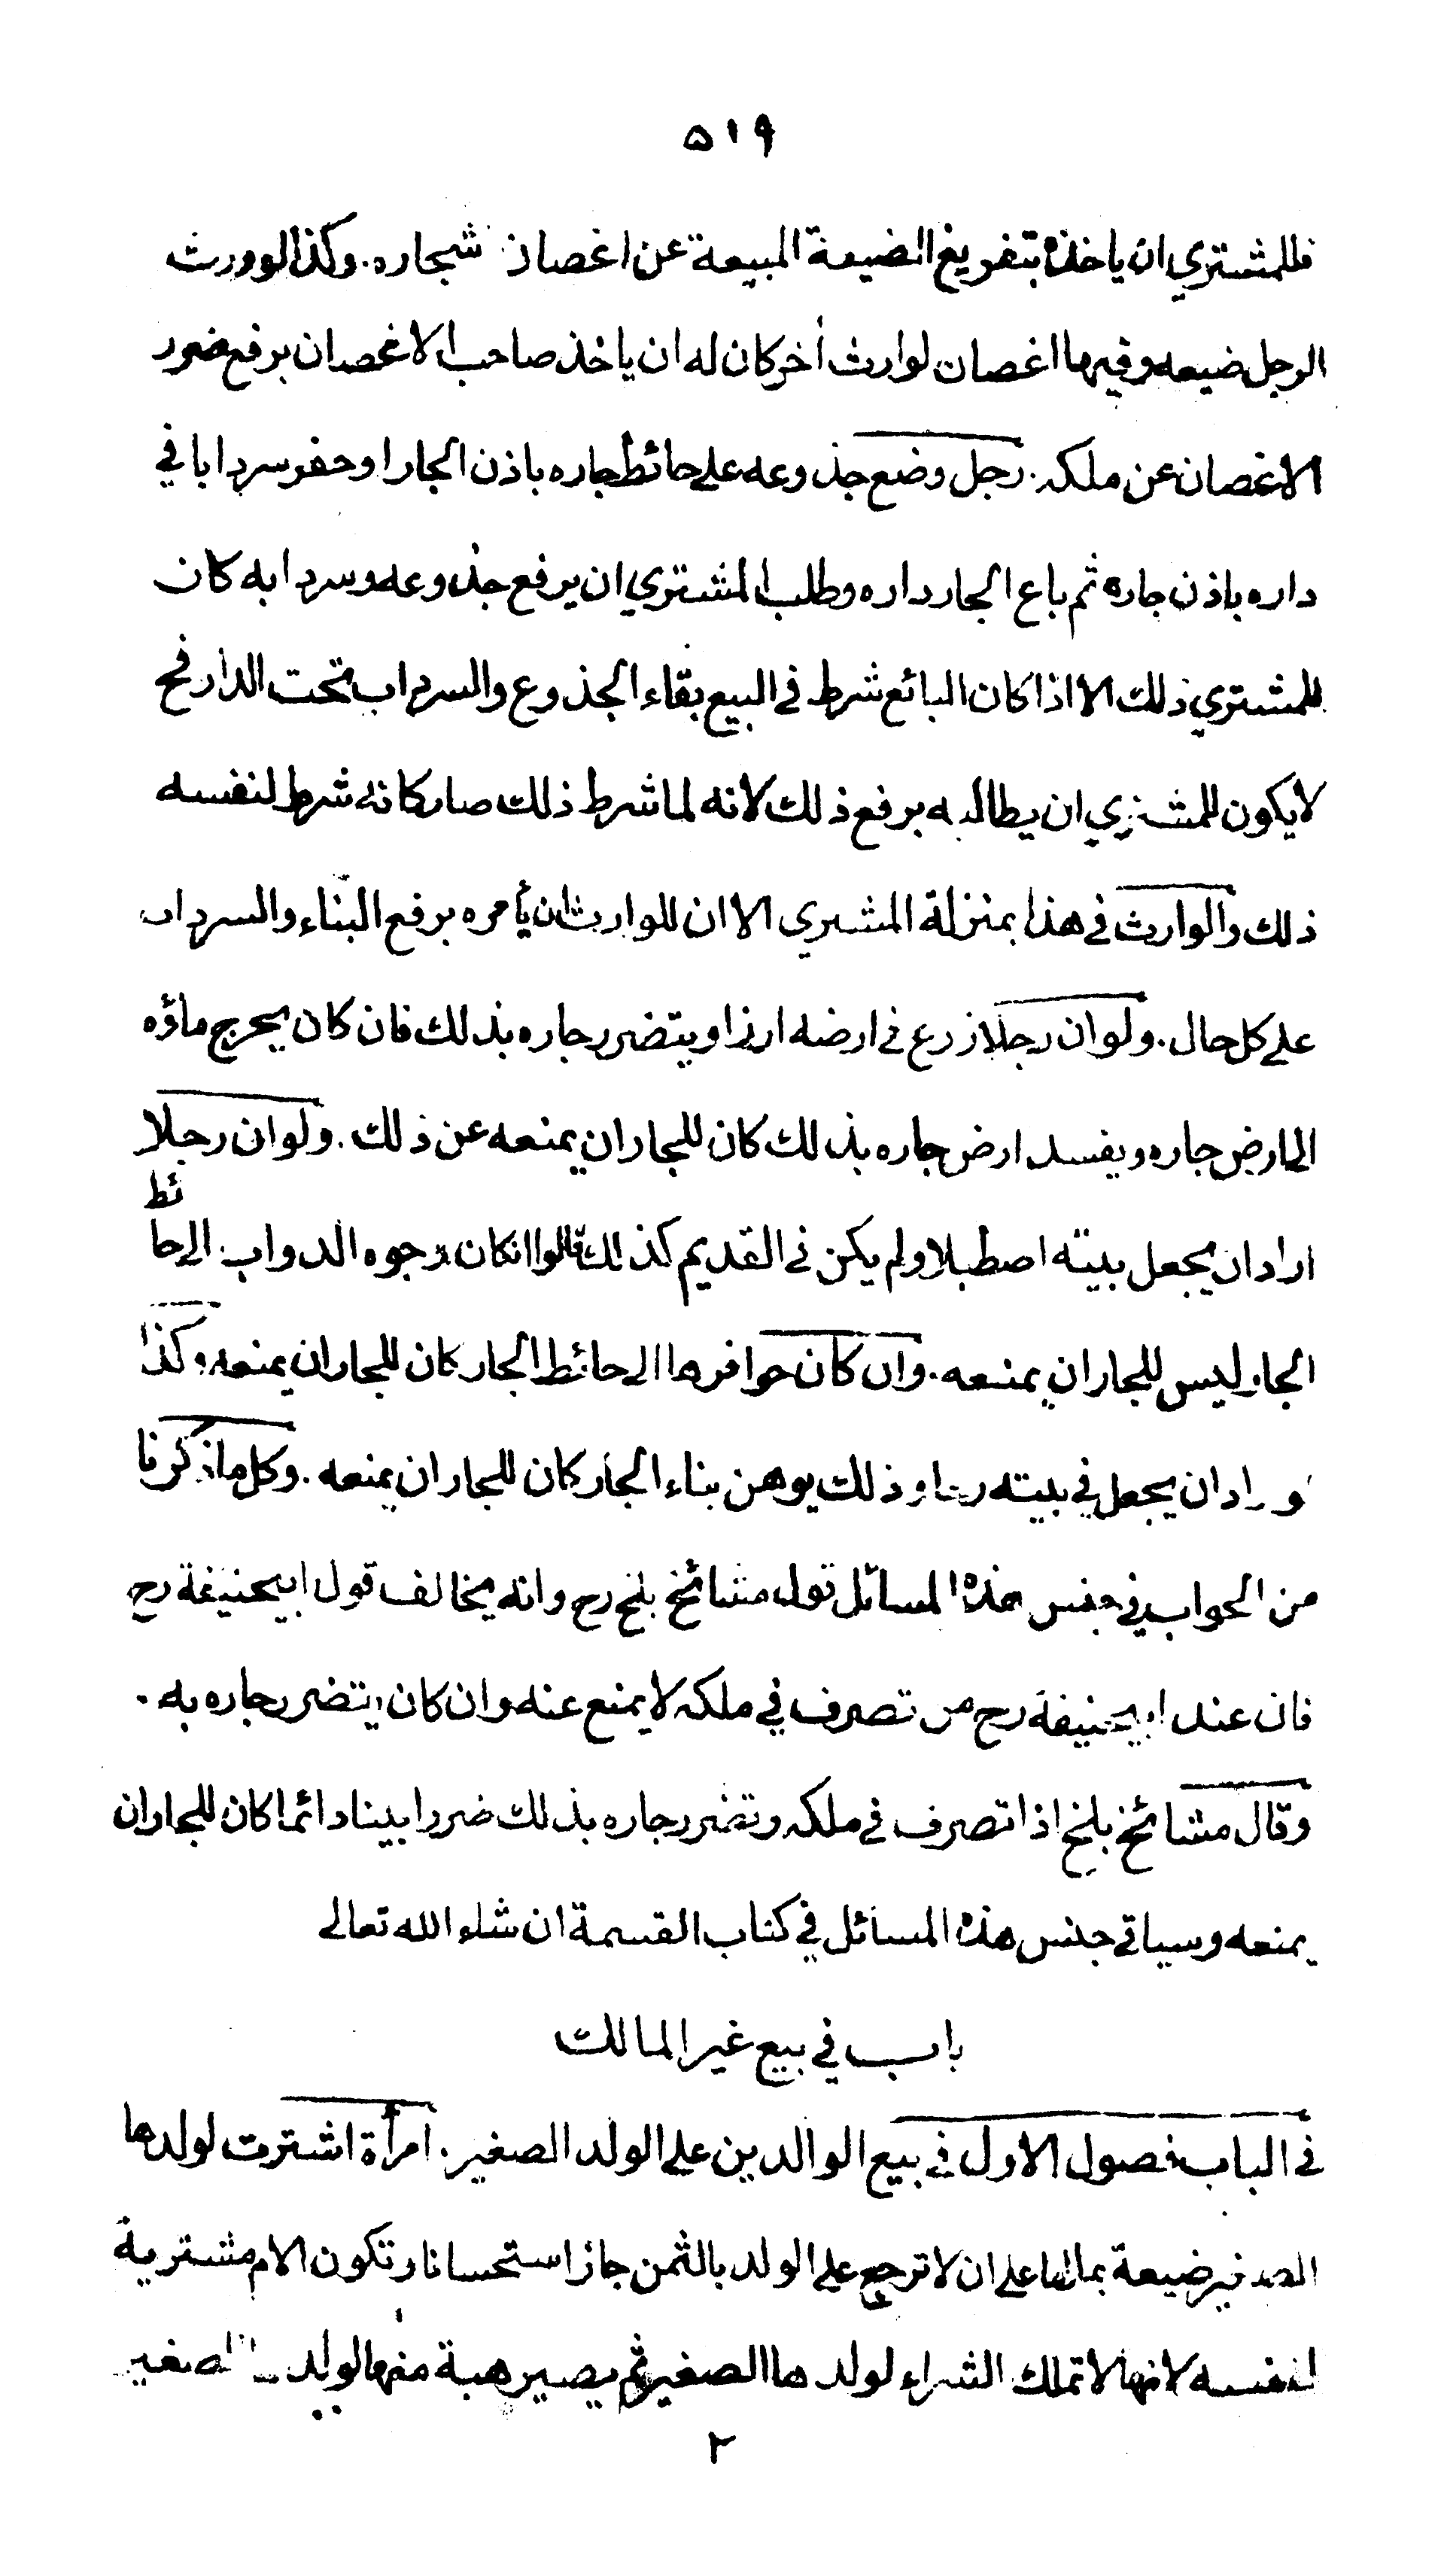 ٥١٩
فللمشتري ان ياخذه بتفريغ الضيعة المبيعة عن اغصان شجاره. وكذا لوورث
الرجل ضيعه وفيها اغصان لوارث أخر كان له ان ياخذ صاحب الاغصان برفع ضرر
الاغصان عن ملكه. رجل وضع جذوعه على حائط جاره باذن الجار اوحفر سردابا في
داره باذن جاره ثم باع الجار داره وطلب المشتري ان يرفع جذوعه وسردابه كان
للمشتري ذلك الا اذا كان البائع شرط في البيع بقاء الجذوع والسرداب تحت الدار فح
لا يكون للمشتري ان يطالبه برفع ذلك لانه لما شرط ذلك صار كانه شرط لنفسه
ذلك والوارث في هذا بمنزلة المشتري الا ان للوارث ان يأمره برفع البناء والسرداب
على كل حال. ولو ان رجلا زرع في ارضه ارزا ويتضرر جاره بذلك فان كان يخرج ماؤه
الى ارض جاره ويفسد ارض جاره بذلك كان للجار ان يمنعه عن ذلك. ولو ان رجلا
اراد ان يجعل بيته اصطبلا ولم يكن في القديم كذلك قالوا انكان وجوه الدواب الى حائط
الجار ليس للجار ان يمنعه. وان كان حوافرها الى حائط الجار كان للجار ان يمنعه وكذا
لو اراد ان يجعل في بيته رحا وذلك يوهن بناء الجار كان للجار ان يمنعه. وكل ما ذكرنا
من الجواب في جنس هذه المسائل قول مشائخ بلخ رح وانه يخالف قول ابيحنيفة رح
فان عند ابيحنيفة رح من تصرف في ملكه لا يمنع عنه وان كان يتضرر جاره به.
وقال مشائخ بلخ اذا تصرف في ملكه وتضرر جاره بذلك ضررا بينا دائما كان للجار ان
يمنعه وسياتي جنس هذه المسائل في كتاب القسمة ان شاء الله تعالى
باب في بيع غير المالك
في الباب فصول الاول في بيع الوالدين على الولد الصغير. امرأة اشترت لولدها
الصغير ضيعة بمالها على ان لا ترجع على الولد بالثمن جاز استحسانا وتكون الام مشترية
لنفسه لانها لا تملك الشراء لولدها الصغير ثم يصير هبة منها لولد الصغير
٢